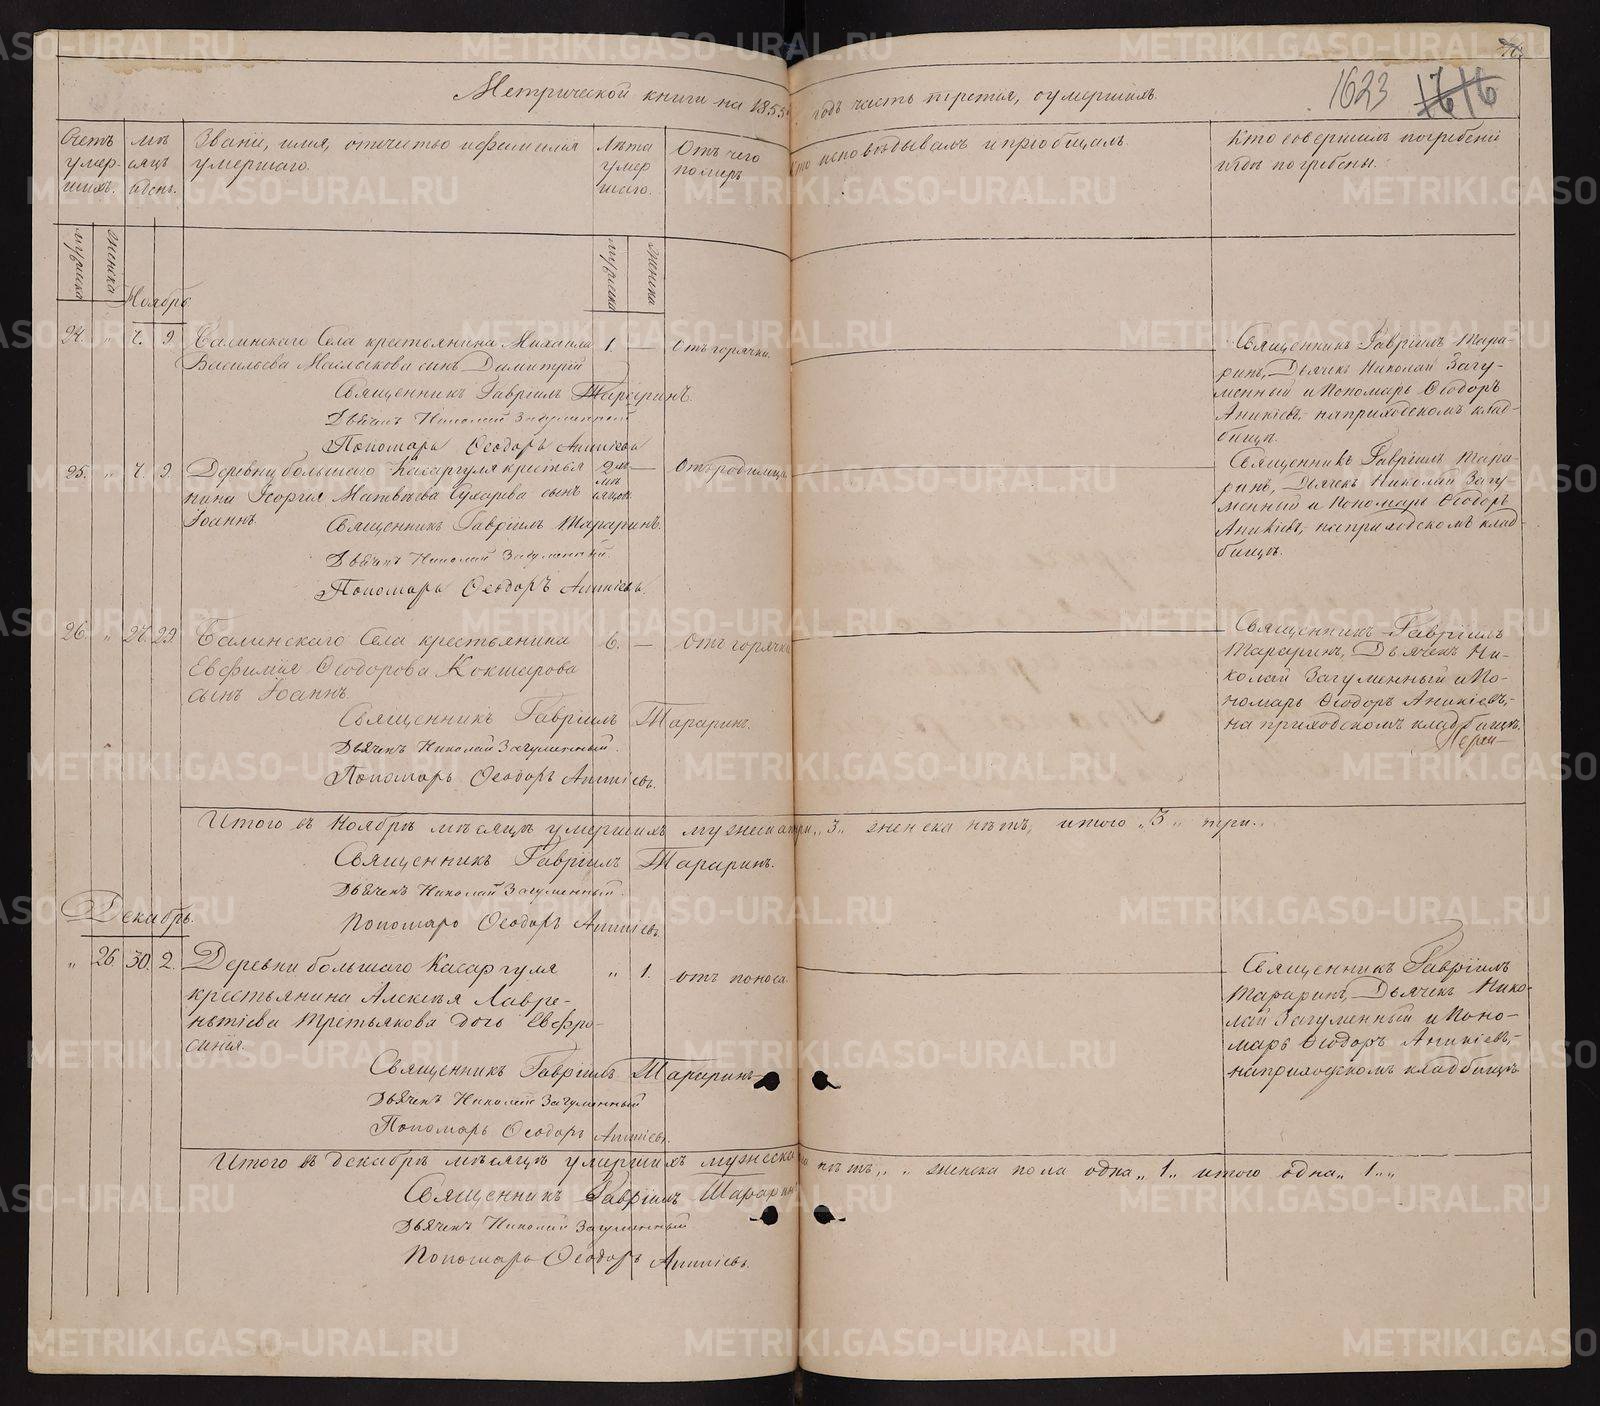 Метрической книги на 1855й годъ часть третія, о умершихъ.
1623
Счетъ умер-шихъ.
мѣ-сяцъ и день.
Званіе, имя, отечество и фамилія умершаго.
Лѣта умер шаго.
Отъ чего померъ
Кто исповѣдывалъ и пріобщалъ.
Кто совершалъ погребеніе и гдѣ погребены.
мужска
женска
мужска
женска
Ноябрь
24. " 7. 9. Галинскаго Села крестьянина Михаила 1. — Отъ горячки.
Васильева сынъ Димитрій
Священникъ Гавріилъ Тараринъ.
Дьячекъ Николай Загуменный
Пономарь Ѳеодоръ Аникіевъ
Священникъ Гавріилъ Тара-
ринъ, Дьячекъ Николай Загу-
менный и Пономарь Ѳеодоръ
Аникіевъ, на приходскомъ клад-
бищѣ.
25. " 7. 9. Деревни большаго Касаргуля крестья 2хъ мѣ сяцовъ — Отъ родимца
нина Георгія Матвѣева Сухарева сынъ
Іоаннъ.
Священникъ Гавріилъ Тараринъ.
Дьячекъ Николай Загуменный.
Пономарь Ѳеодоръ Аникіевъ.
Священникъ Гавріилъ Тара-
ринъ, Дьячекъ Николай Загу-
менный и Пономарь Ѳеодоръ
Аникіевъ, на приходскомъ клад-
бищѣ.
26. " 27. 29. Галинскаго Села крестьянина 6. — Отъ горячки
Евфимія Ѳеодорова Кокшарова
сынъ Іоаннъ.
Священникъ Гавріилъ Тараринъ.
Дьячекъ Николай Загуменный.
Пономарь Ѳеодоръ Аникіевъ.
Священникъ Гавріилъ
Тараринъ, Дьячекъ Ни-
колай Загуменный и По-
номарь Ѳеодоръ Аникіевъ,
на приходскомъ кладбищѣ.
Итого въ Ноябрѣ мѣсяцѣ умершихъ мужска три "3" женска нѣтъ, итого "3" три.
Священникъ Гавріилъ Тараринъ.
Дьячекъ Николай Загуменный.
Пономарь Ѳеодоръ Аникіевъ.
Декабрь.
" 26. 30. 2. Деревни большаго Касаргуля " 1. отъ поноса
крестьянина Алексѣя Лавре-
нтіева Третьякова дочь Евфро-
синія.
Священникъ Гавріилъ Тараринъ
Дьячекъ Николай Загуменный
Пономарь Ѳеодоръ Аникіевъ.
Священникъ Гавріилъ
Тараринъ, Дьячекъ Нико-
лай Загуменный и Поно-
марь Ѳеодоръ Аникіевъ,
на приходскомъ кладбищѣ.
Итого въ декабрѣ мѣсяцѣ умершихъ мужеска нѣтъ, " женска пола одна "1" итого одна "1"
Священникъ Гавріилъ Тараринъ
Дьячекъ Николай Загуменный
Пономарь Ѳеодоръ Аникіевъ.
METRIKI.GASO-URAL.RU